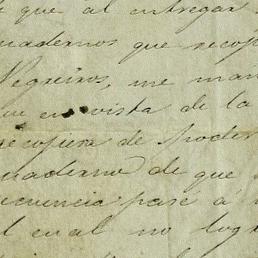 que al entregar
cuadernos que recoj
Negreiros, me man
que en vista de la
recojiera de poder
cuaderno de que
cuencia pasé á
el cual no log